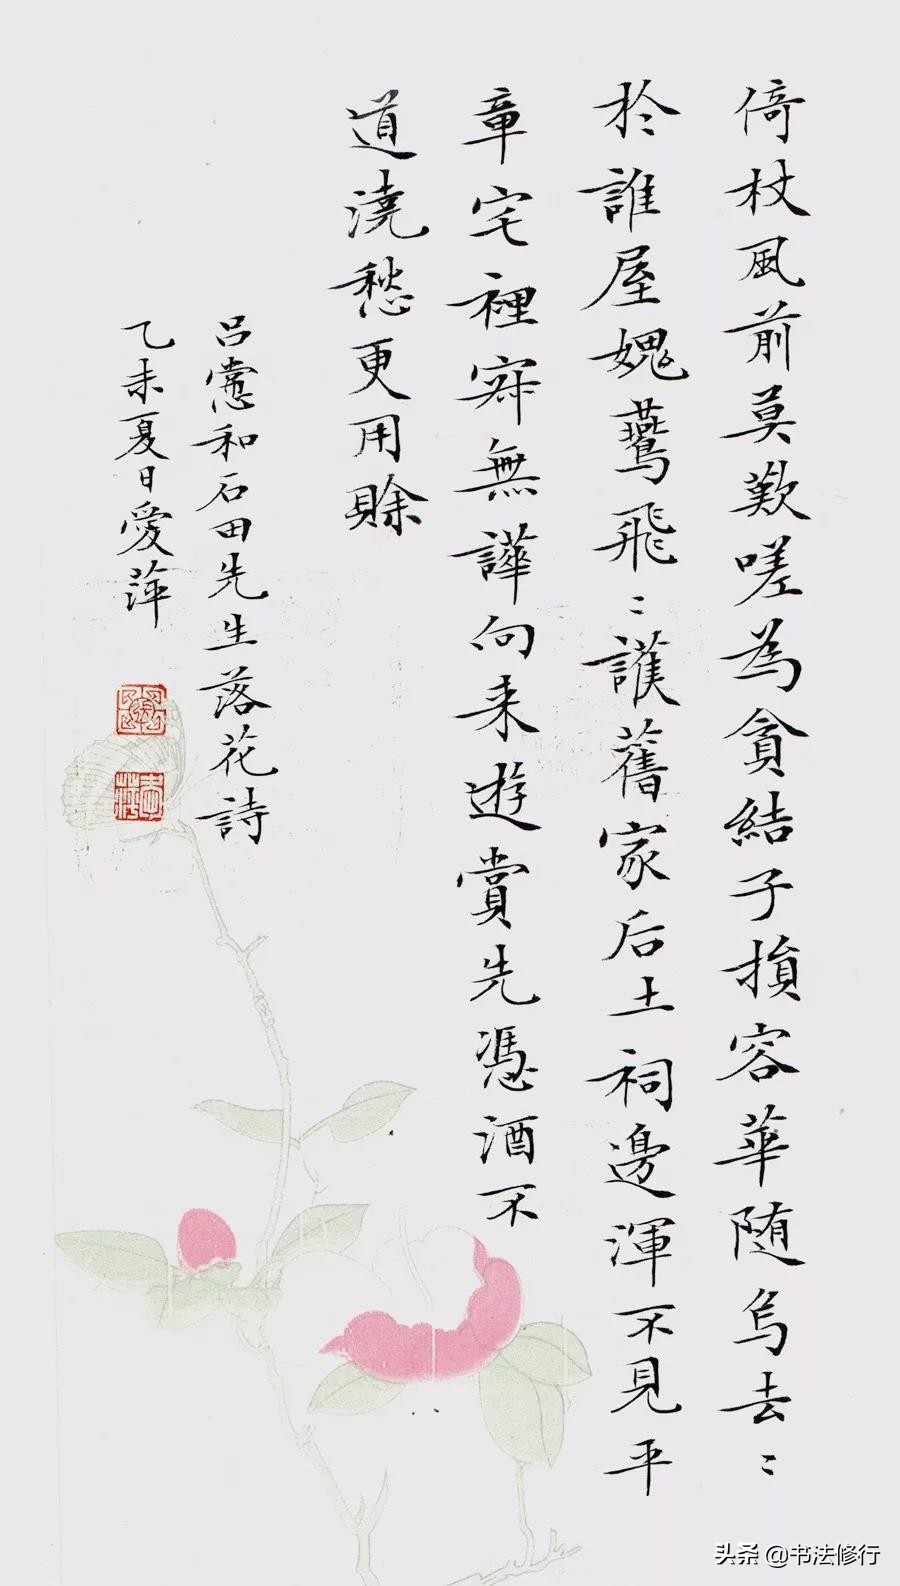 倚杖風前莫歎嗟為貪結子損容華随烏去〻
於誰屋媿鷰飛〻護舊家后土祠邊渾不見平
章宅裡寂無譁向来遊賞先憑酒不
道澆愁更用賒
吕㦂和石田先生落花詩
乙未夏日愛萍
头条 @书法修行